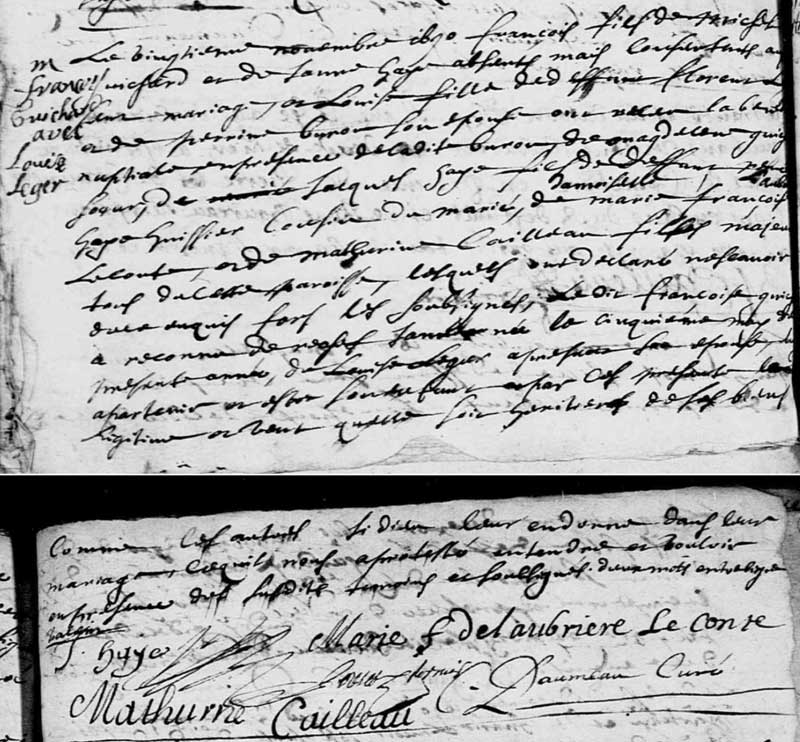 m
françois
Guichard
avec
Louize
Leger
Le vingtiesme novembre 1690 françois fils de michel
Guichard et de Janne haye absents mais consentants au
leur mariage, et Louise fille de deffunt florent
et de perrine buron son epouse ont receu la ben
nuptiale en presence de ladite buron, de magdelene guig
de Jacques haye fils de deffunt rené
haye huissier cousin du marié, de damoiselle marie françois
Leconte, et de mathurine Cailleau filles majeu
tous de cette paroisse, lesquels ont declaré ne scavoir
de ce enquis fors les soubsignés, Le dit françois guic
a reconnu de née le cinquieme may de
presente année, de Louise Leger a present son epouse, lu
apartenir et estre son enfant et par ces presente
legitime et veut quelle soit heritiere de ses biens
Comme les autres si dieu leur en donne dans leur
mariage, ce quils nous a protesté entendre et vouloir
en presence des susdits temoins et soussignes. deux mots entreligne
valent
J haye
Marie f delaubriere Le conte
Daumeau Curé
Mathurine Cailleau